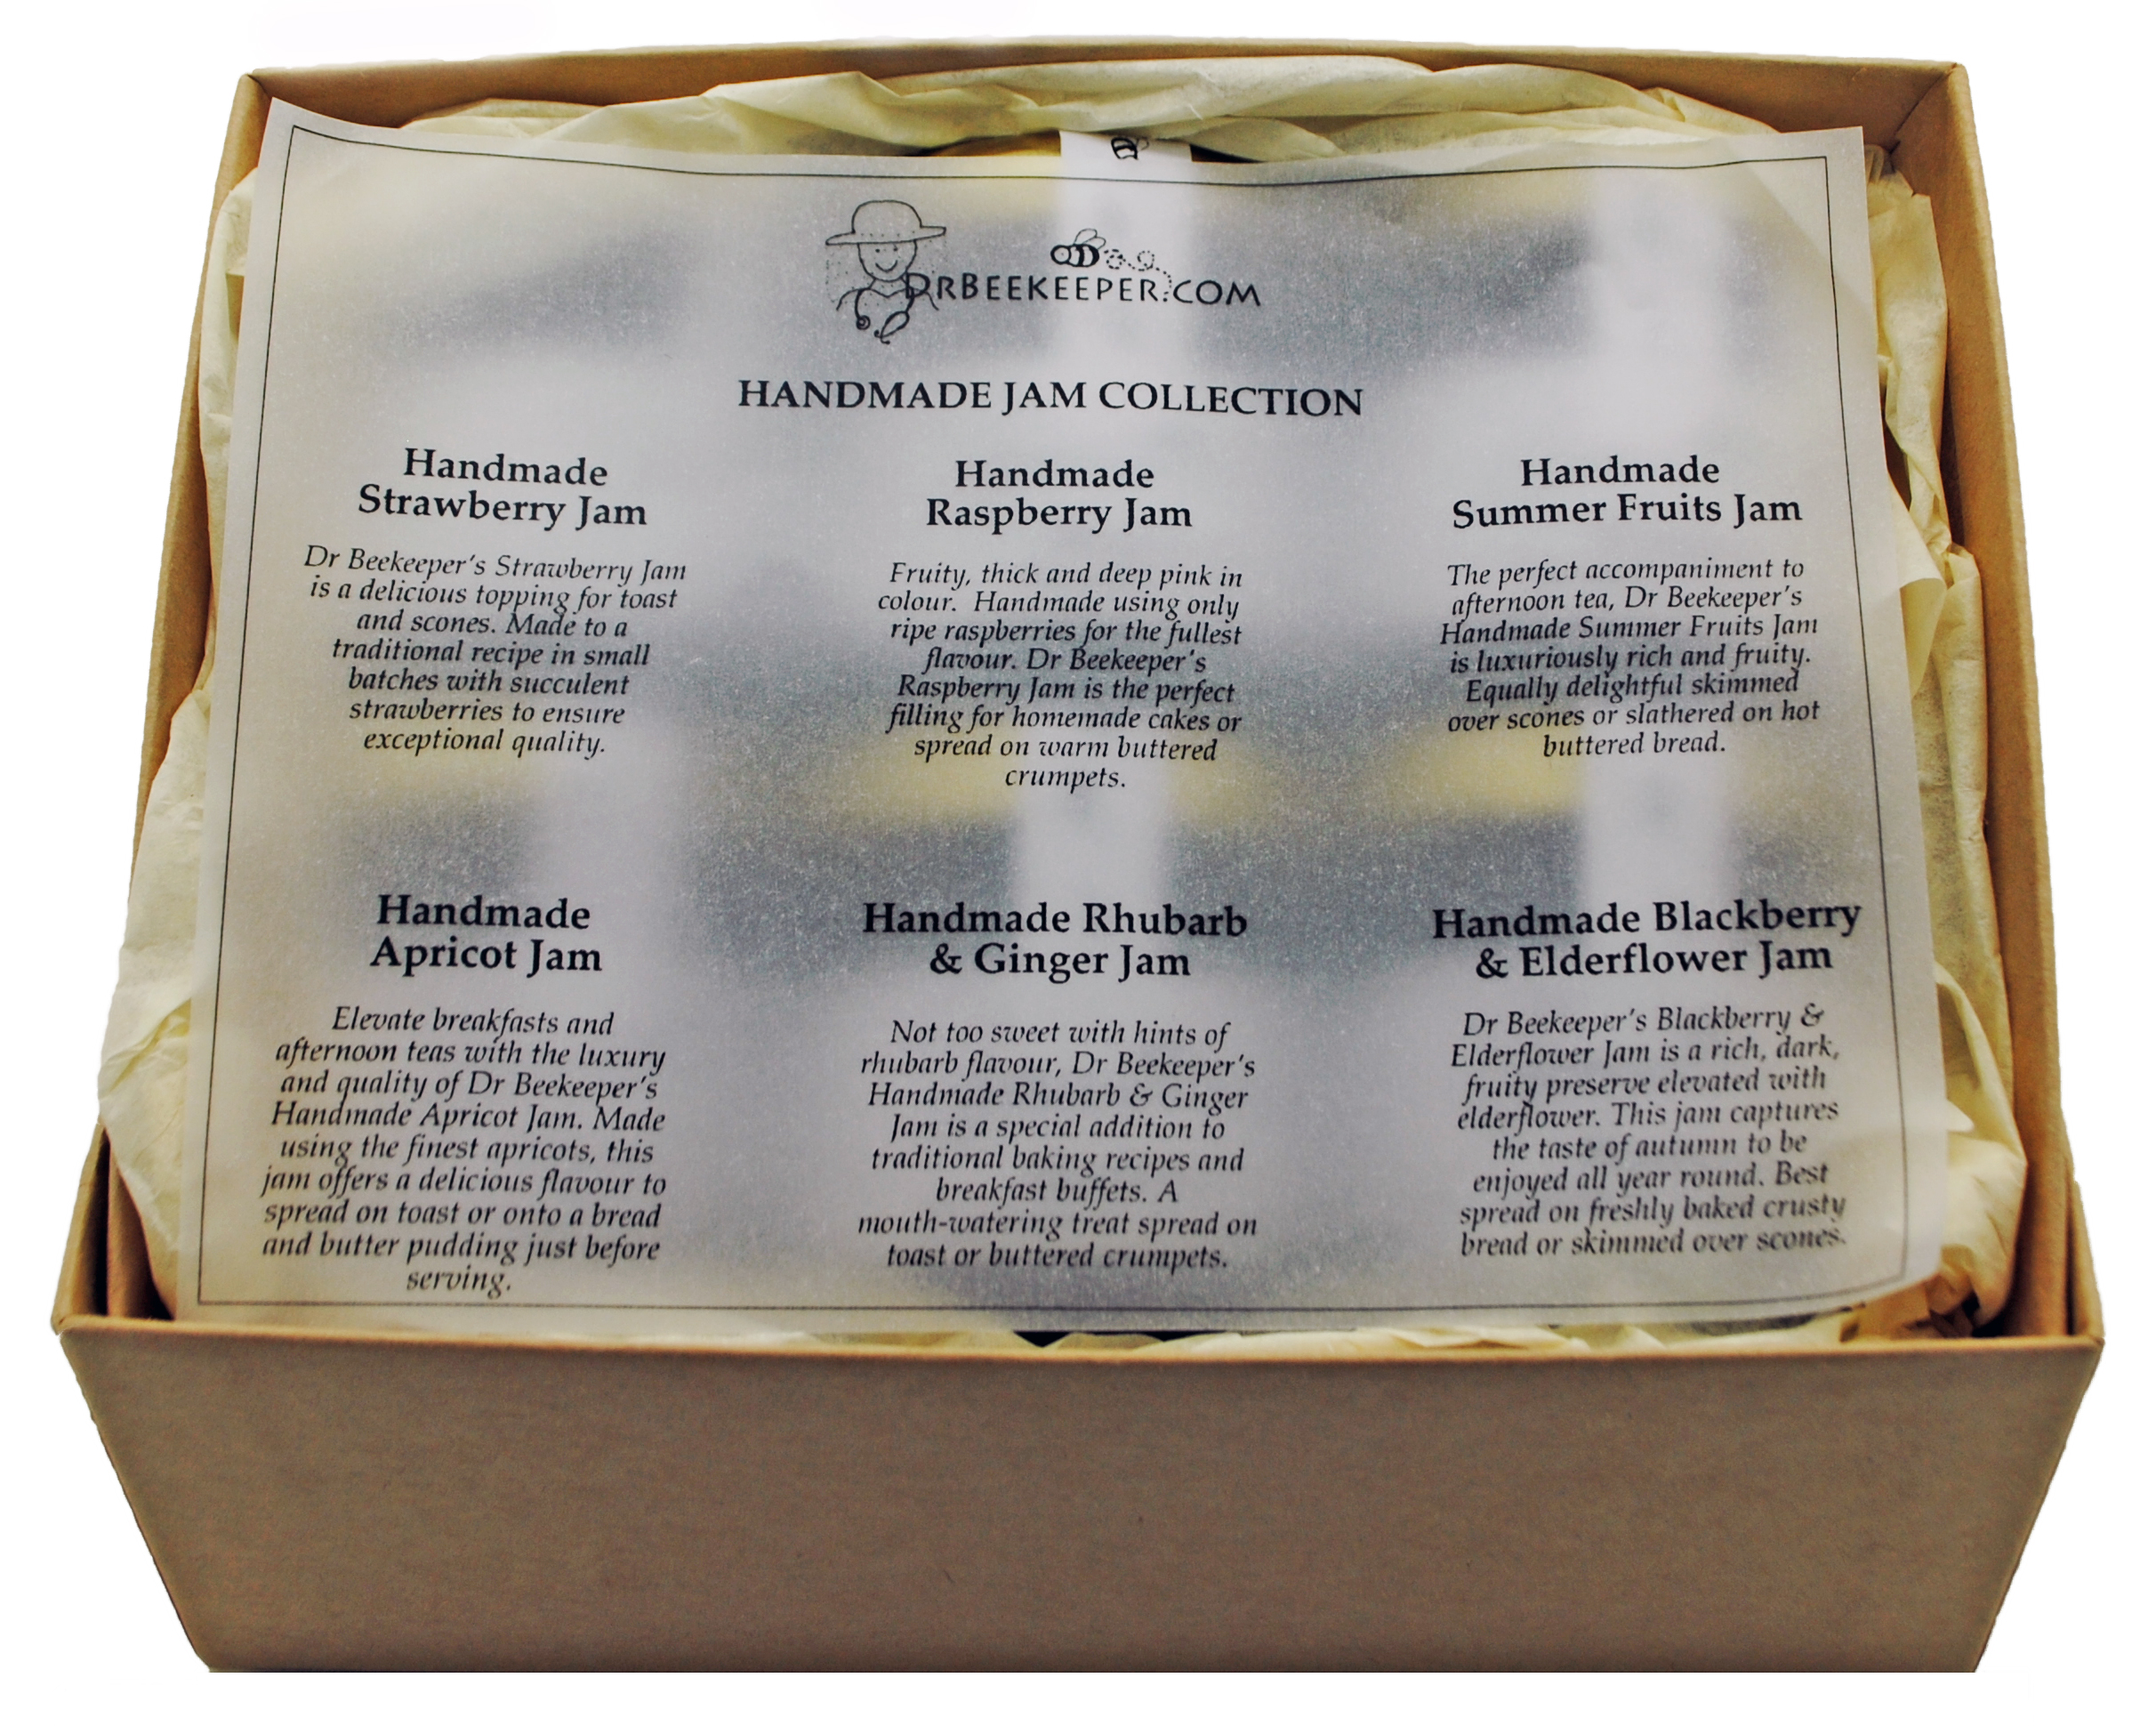 DRBEEKEEPER.COM
HANDMADE JAM COLLECTION
Handmade
Strawberry Jam
Dr Beekeeper's Strawberry Jam
is a delicious topping for toast
and scones. Made to a
traditional recipe in small
batches with succulent
strawberries to ensure
exceptional quality.
Handmade
Raspberry Jam
Fruity, thick and deep pink in
colour. Handmade using only
ripe raspberries for the fullest
flavour. Dr Beekeeper's
Raspberry Jam is the perfect
filling for homemade cakes or
spread on warm buttered
crumpets.
Handmade
Summer Fruits Jam
The perfect accompaniment to
afternoon tea, Dr Beekeeper's
Handmade Summer Fruits Jam
is luxuriously rich and fruity.
Equally delightful skimmed
over scones or slathered on hot
buttered bread.
Handmade
Apricot Jam
Elevate breakfasts and
afternoon teas with the luxury
and quality of Dr Beekeeper's
Handmade Apricot Jam. Made
using the finest apricots, this
jam offers a delicious flavour to
spread on toast or onto a bread
and butter pudding just before
serving.
Handmade Rhubarb
& Ginger Jam
Not too sweet with hints of
rhubarb flavour, Dr Beekeeper's
Handmade Rhubarb & Ginger
Jam is a special addition to
traditional baking recipes and
breakfast buffets. A
mouth-watering treat spread on
toast or buttered crumpets.
Handmade Blackberry
& Elderflower Jam
Dr Beekeeper's Blackberry &
Elderflower Jam is a rich, dark,
fruity preserve elevated with
elderflower. This jam captures
the taste of autumn to be
enjoyed all year round. Best
spread on freshly baked crusty
bread or skimmed over scones.